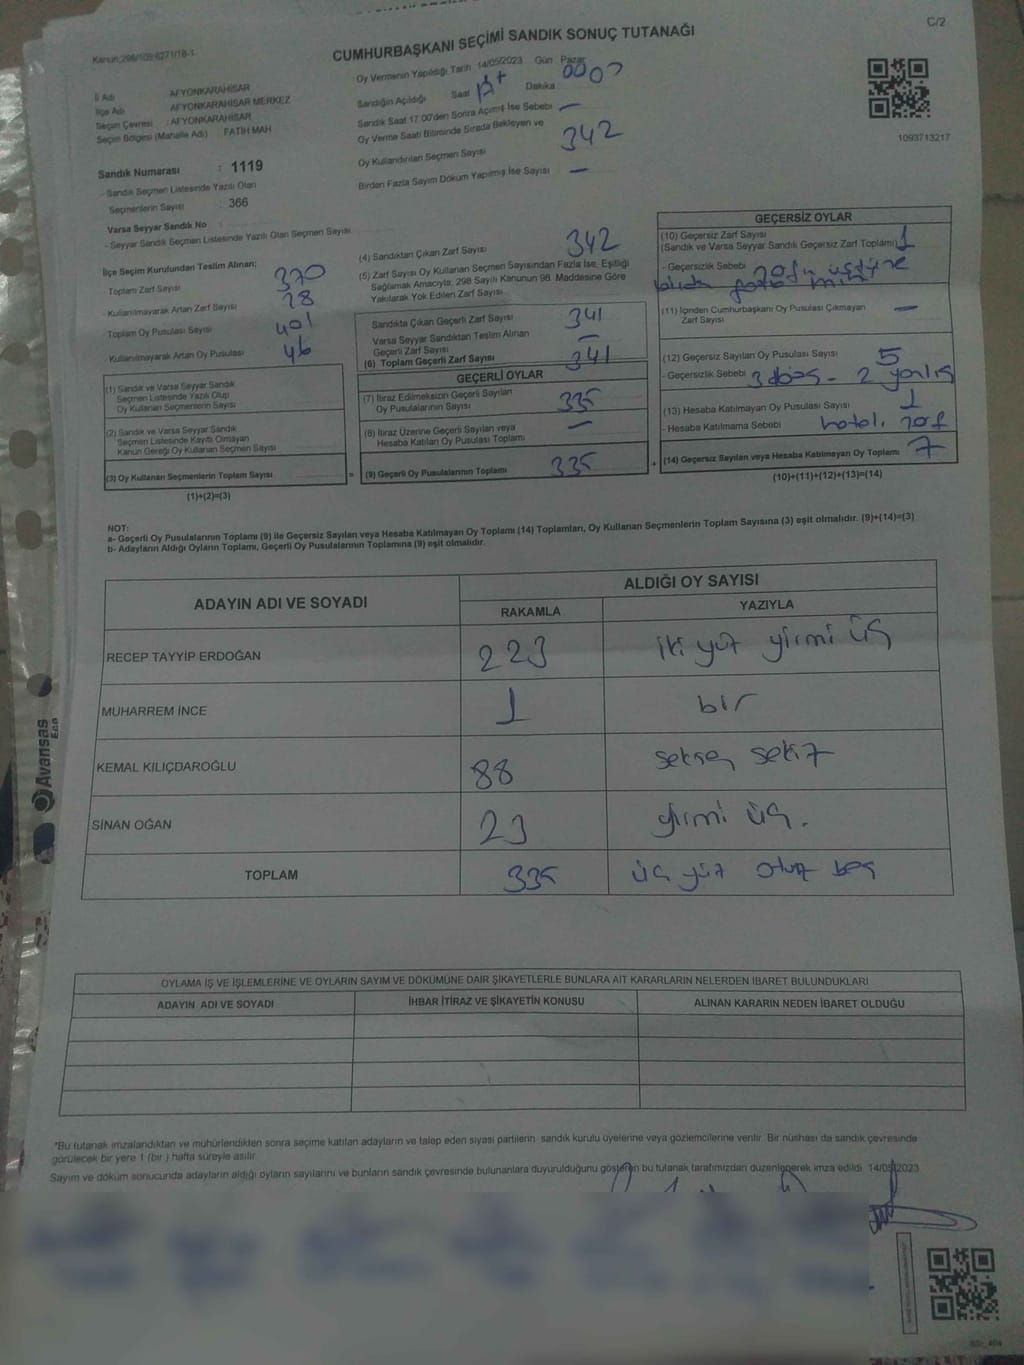 C/2
Kanun:298/105-6271/18-1
CUMHURBAŞKANI SEÇİMİ SANDIK SONUÇ TUTANAĞI
İl Adı AFYONKARAHİSAR
İlçe Adı AFYONKARAHİSAR MERKEZ
Seçim Çevresi : AFYONKARAHİSAR
Seçim Bölgesi (Mahalle Adı) : FATİH MAH
Sandık Numarası : 1119
- Sandık Seçmen Listesinde Yazılı Olan
Seçmenlerin Sayısı : 366
Varsa Seyyar Sandık No :
- Seyyar Sandık Seçmen Listesinde Yazılı Olan Seçmen Sayısı
Oy Vermenin Yapıldığı Tarih 14/05/2023 Gün Pazar
Sandığın Açıldığı Saat Dakika
Sandık Saat 17:00'den Sonra Açılmış İse Sebebi —
Oy Verme Saati Bitiminde Sırada Bekleyen ve
Oy Kullandırılan Seçmen Sayısı 342
Birden Fazla Sayım Döküm Yapılmış İse Sayısı —
1093713217
İlçe Seçim Kurulundan Teslim Alınan;
- Toplam Zarf Sayısı 370
- Kullanılmayarak Artan Zarf Sayısı 28
- Toplam Oy Pusulası Sayısı 401
- Kullanılmayarak Artan Oy Pusulası 46
(1) Sandık ve Varsa Seyyar Sandık
Seçmen Listesinde Yazılı Olup
Oy Kullanan Seçmenlerin Sayısı
(2) Sandık ve Varsa Seyyar Sandık
Seçmen Listesinde Kayıtlı Olmayan
Kanun Gereği Oy Kullanan Seçmen Sayısı
(3) Oy Kullanan Seçmenlerin Toplam Sayısı
(1)+(2)=(3)
(4) Sandıktan Çıkan Zarf Sayısı 342
(5) Zarf Sayısı Oy Kullanan Seçmen Sayısından Fazla İse, Eşitliği
Sağlamak Amacıyla, 298 Sayılı Kanunun 98. Maddesine Göre
Yakılarak Yok Edilen Zarf Sayısı
Sandıkta Çıkan Geçerli Zarf Sayısı 341
Varsa Seyyar Sandıktan Teslim Alınan
Geçerli Zarf Sayısı —
(6) Toplam Geçerli Zarf Sayısı 341
GEÇERLİ OYLAR
(7) İtiraz Edilmeksizin Geçerli Sayılan
Oy Pusulalarının Sayısı 335
(8) İtiraz Üzerine Geçerli Sayılan veya
Hesaba Katılan Oy Pusulası Toplamı —
= (9) Geçerli Oy Pusulalarının Toplamı 335 +
GEÇERSİZ OYLAR
(10) Geçersiz Zarf Sayısı
(Sandık ve Varsa Seyyar Sandık Geçersiz Zarf Toplamı) 1
- Geçersizlik Sebebi zarfın üstüne
(11) İçinden Cumhurbaşkanı Oy Pusulası Çıkmayan
Zarf Sayısı —
(12) Geçersiz Sayılan Oy Pusulası Sayısı 5
- Geçersizlik Sebebi 3 boş - 2 yanlış
(13) Hesaba Katılmayan Oy Pusulası Sayısı 1
- Hesaba Katılmama Sebebi hatalı zarf
(14) Geçersiz Sayılan veya Hesaba Katılmayan Oy Toplamı 7
(10)+(11)+(12)+(13)=(14)
NOT:
a- Geçerli Oy Pusulalarının Toplamı (9) ile Geçersiz Sayılan veya Hesaba Katılmayan Oy Toplamı (14) Toplamları, Oy Kullanan Seçmenlerin Toplam Sayısına (3) eşit olmalıdır. (9)+(14)=(3)
b- Adayların Aldığı Oyların Toplamı, Geçerli Oy Pusulalarının Toplamına (9) eşit olmalıdır.
ADAYIN ADI VE SOYADI
ALDIĞI OY SAYISI
RAKAMLA YAZIYLA
RECEP TAYYİP ERDOĞAN 223 iki yüz yirmi üç
MUHARREM İNCE 1 bir
KEMAL KILIÇDAROĞLU 88 seksen sekiz
SİNAN OĞAN 23 yirmi üç.
TOPLAM 335 üç yüz otuz beş
OYLAMA İŞ VE İŞLEMLERİNE VE OYLARIN SAYIM VE DÖKÜMÜNE DAİR ŞİKAYETLERLE BUNLARA AİT KARARLARIN NELERDEN İBARET BULUNDUKLARI
ADAYIN ADI VE SOYADI İHBAR İTİRAZ VE ŞİKAYETİN KONUSU ALINAN KARARIN NEDEN İBARET OLDUĞU
*Bu tutanak imzalandıktan ve mühürlendikten sonra seçime katılan adayların ve talep eden siyasi partilerin sandık kurulu üyelerine veya gözlemcilerine verilir. Bir nüshası da sandık çevresinde
görülecek bir yere 1 (bir) hafta süreyle asılır.
Sayım ve döküm sonucunda adayların aldığı oyların sayılarını ve bunların sandık çevresinde bulunanlara duyurulduğunu gösteren bu tutanak tarafımızdan düzenlenerek imza edildi. 14/05/2023
Avansas
Eco